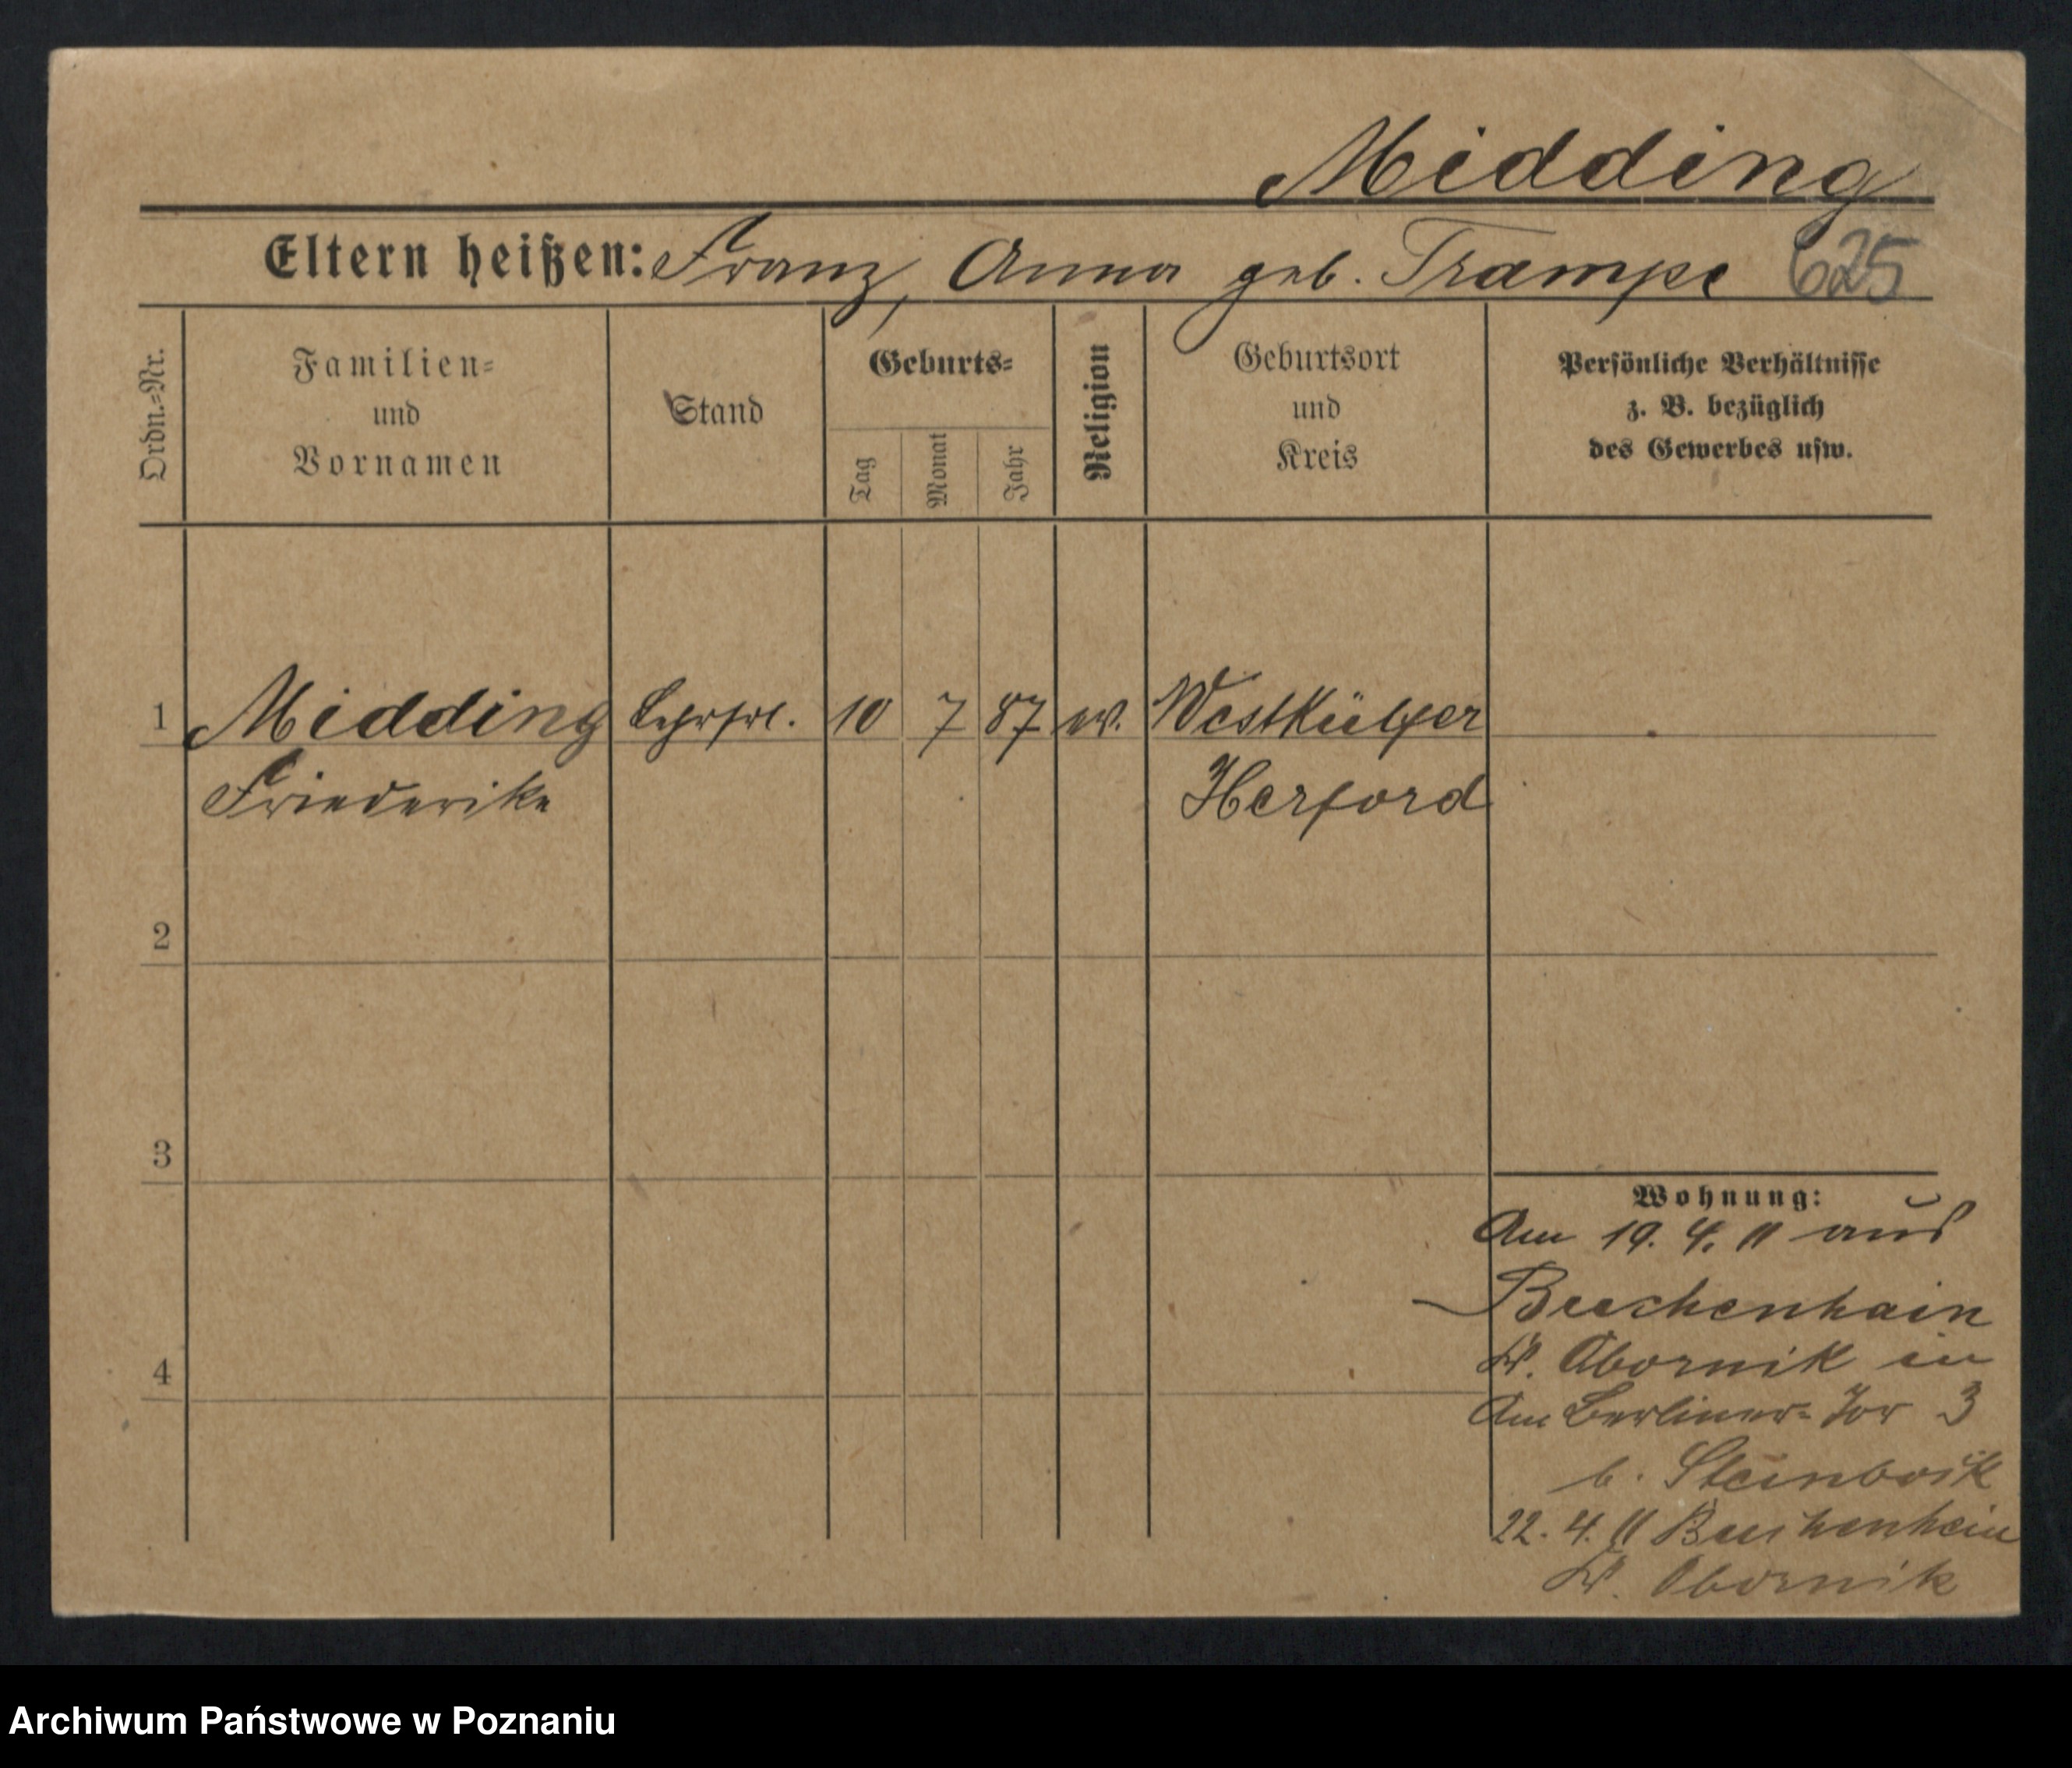 Midding
Eltern heißen: Franz, Anna geb. Trampe 625
Ordn.-Nr.
Familien-
und
Vornamen
Stand
Geburts-
Tag
Monat
Jahr
Religion
Geburtsort
und
Kreis
Persönliche Verhältnisse
z. B. bezüglich
des Gewerbes usw.
1 Midding Lehrfrl. 10 7 87 ev.
Friederike Herford
2
3
4
Wohnung:
Am 19. 4. 11 aus
Buchenhain
Kr. Obornik in
Am Berliner-Tor 3
b.
22. 4. 11 Buchenhain
Kr. Obornik
Archiwum Państwowe w Poznaniu